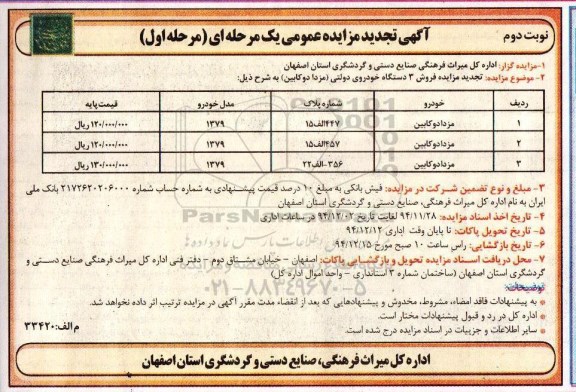 نوبت دوم
آگهی تجدید مزایده عمومی یک مرحله ای (مرحله اول)
۱- مزایده گزار: اداره کل میراث فرهنگی صنایع دستی و گردشگری استان اصفهان
۲- موضوع مزایده: تجدید مزایده فروش ۳ دستگاه خودروی دولتی (مزدا دوکابین) به شرح ذیل:
ردیف خودرو شماره پلاک مدل خودرو قیمت پایه
۱ مزدا دوکابین ۴۴۷الف۱۵ ۱۳۷۹ ۱۲۰/۰۰۰/۰۰۰ ریال
۲ مزدا دوکابین ۴۵۷الف۱۵ ۱۳۷۹ ۱۲۰/۰۰۰/۰۰۰ ریال
۳ مزدا دوکابین ۳۵۶-الف۲۲ ۱۳۷۹ ۱۳۰/۰۰۰/۰۰۰ ریال
۳- مبلغ و نوع تضمین شرکت در مزایده: فیش بانکی به مبلغ ۱۰ درصد قیمت پیشنهادی به شماره حساب شماره ۲۱۷۲۶۲۰۲۰۶۰۰۰ بانک ملی
ایران به نام اداره کل میراث فرهنگی، صنایع دستی و گردشگری استان اصفهان
۴- تاریخ اخذ اسناد مزایده: ۹۴/۱۱/۲۸ لغایت تاریخ ۹۴/۱۲/۰۲ در ساعات اداری
۵- تاریخ تحویل پاکات: تا پایان وقت اداری ۹۴/۱۲/۱۲
۶- تاریخ بازگشایی: راس ساعت ۱۰ صبح مورخ ۹۴/۱۲/۱۵
۷- محل دریافت اسناد مزایده تحویل و بازگشایی پاکات: اصفهان - خیابان مشتاق دوم - دفتر فنی اداره کل میراث فرهنگی صنایع دستی و
گردشگری استان اصفهان (ساختمان شماره ۳ استانداری - واحد اموال اداره کل)
توضیحات:
به پیشنهادات فاقد امضاء، مشروط، مخدوش و پیشنهادهایی که بعد از انقضاء مدت مقرر آگهی در مزایده ترتیب اثر داده نخواهد شد.
اداره کل در رد و قبول پیشنهادات مختار است.
سایر اطلاعات و جزییات در اسناد مزایده درج شده است.
م الف: ۳۳۴۲۰
اداره کل میراث فرهنگی، صنایع دستی و گردشگری استان اصفهان
۰۲۱-۸۸۳۴۹۶۷۰-۵